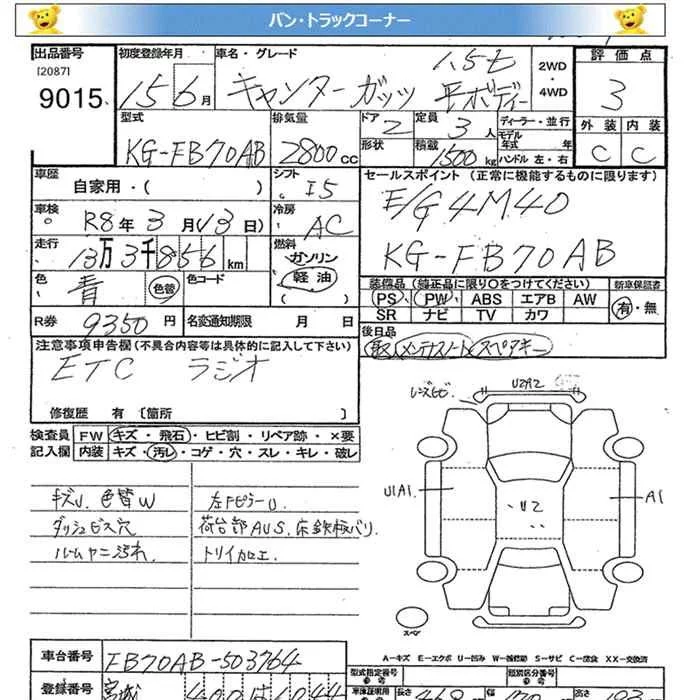 バン・トラックコーナー
出品番号 初度登録年月 車名・グレード 1.5t 2WD・4WD 評価点
[2087]
9015 15 6月 キャンターガッツ 平ボディー 3
型式 排気量 ドア 2 定員 3人 ディーラー・並行 外装 内装
KG-FB70AB 2800cc 形状 積載 1500kg モデル年式 年 ハンドル 左・右 C C
車歴 自家用・( ) シフト I5 セールスポイント (正常に機能するものに限ります)
車検 R8年3月(13日) 冷房 AC E/G 4M40
走行 13万3千856km 燃料 ガソリン 軽油 KG-FB70AB
色 青 色替 色コード 装備品 (純正品に限り○をつけてください) 新車保証書
PS PW ABS エアB AW 有・無
SR ナビ TV カワ
R券 9350円 名変通知期限 月 日 後日品
注意事項申告欄(不具合内容等は具体的に記入して下さい) 取 メンテナスノート スペアキー
ETC ラジオ
修復歴 有 [箇所 ]
検査員 FW キズ・飛石・ヒビ割・リペア跡・×要
記入欄 内装 キズ・汚レ・コゲ・穴・スレ・キレ・破レ
キズU 色替W 左Fピラー U
ダッシュビス穴 荷台部AUS 床鉄板バリ
ルームヤニ汚れ トリイ加工
レンズヒビ U2A2
U1A1 U2 A1
スペア
A-キズ E-エクボ U-凹み W-補修跡 S-サビ C-腐食 XX-交換済
車台番号 FB70AB-503764
登録番号 宮城 400
型式指定番号 類別区分番号
長さ 幅 高さ